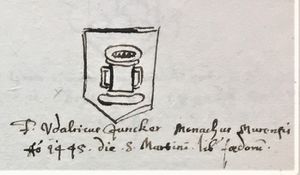 F. Vdalricus Juncker Monachus Murensis
Ao 1445. die S. Martini. lib.